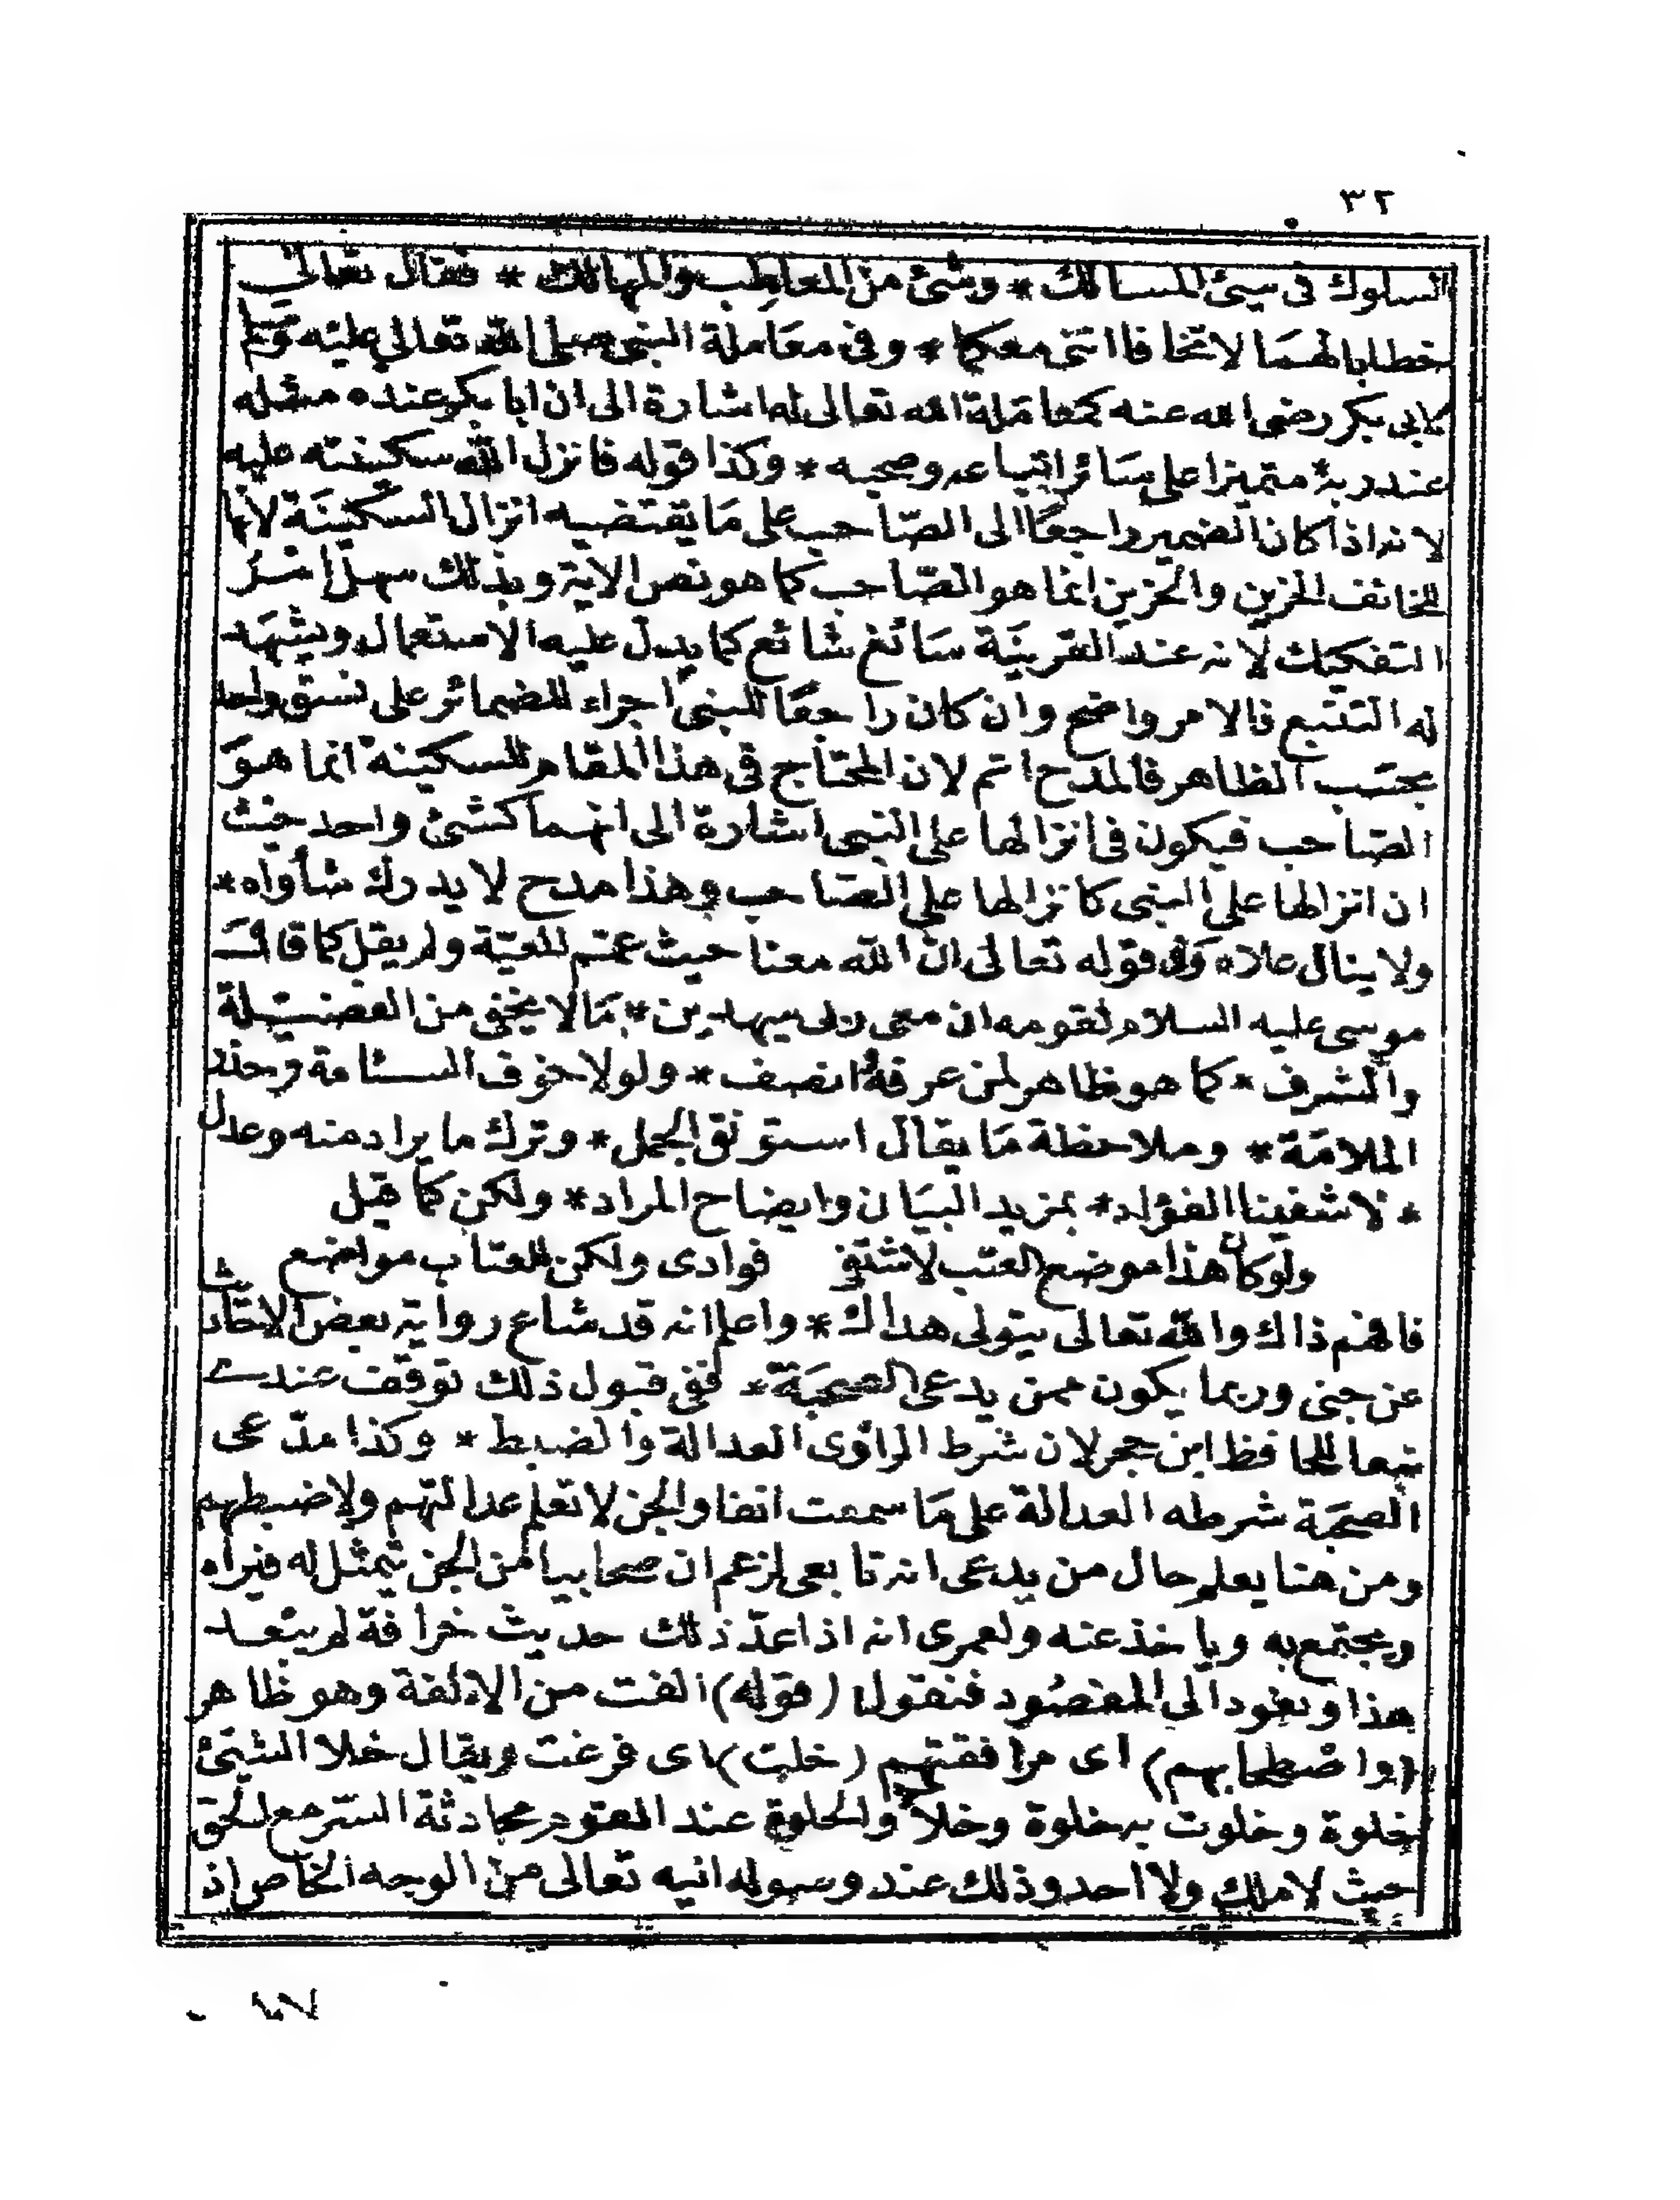 ٣٢
السلوك فى سيئ المسالك * وشئ من المعاطب والمهالك * فقال تعالى
خطابا لهما لا تخافا اننى معكما * وفى معاملة النبى صلى الله تعالى عليه وسلم
لابى بكر رضى الله عنه كمعاملة الله تعالى له اشارة الى ان ابا بكر عنده مثله
عند ربه متميزا على سائر اتباعه وصحبه * وكذا قوله فانزل الله سكينته عليه
لانه اذا كان الضمير راجعا الى الصّاحب على مَا يقتضيه انزال السكينَة لانها
للخائف الحزين والحزين انما هو الصّاحب كما هو نص الاية وبذلك سهل امر
التفكيك لانه عند القرينَة سَائغ شائع كما يدل عليه الاستعمال ويشهَد
له التتبع فالامر واضح وان كان راجعًا للنبى اجراء للضمائر على نسق واحد
بحسَب الظاهر فالمدح اتم لان المحتاج فى هذا المقام للسكينة انما هوَ
الصّاحب فيكون فى انزالها على النبى اشارة الى انهما كشئ واحد حيث
ان انزالها على النبى كانزالها على الصّاحب وهذا مدح لا يدرك شأواه *
ولا ينال علاه وفى قوله تعالى انّ الله معنا حيث عمّم المعيّة ولم يقل كما قال
موسى عليه السلام لقومه ان معى ربى سيهدين * مَا لا يخفى من الفضيلة
والشرف * كما هو ظاهر لمن عرف فانصف * ولولا خوف السئامة وحذر
الملامَة * وملاحظة مَا يقال استونق الجمل * وترك ما يراد منه وعدل
* لاشفينا الفؤاد * بمزيد البيَان وايضاح المراد * ولكن كما قيل
ولو كان هذا موضع العتب لاشتفى فوادى ولكن للعتاب مواضع
فافهم ذاك والله تعالى يتولى هداك * واعلم انه قد شاع رواية بعض الاحاديث
عن جنى وربما يكون ممن يدعى الصحبَة * ففى قبول ذلك توقف عندى
تبعا للحافظ ابن حجر لان شرط الراوى العدالة والضبط * وكذا مدّعى
الصحبَة شرطه العدالة على مَا سمعت انفا والجن لا تعلم عدالتهم ولا ضبطهم
ومن هنا يعلم حال من يدعى انه تابعى لزعم ان صحابيا من الجن تمثل له فيراه
ويجتمع به وياخذ عنه ولعمرى انه اذا عدّ ذلك حديث خرافة لم يبعد
هذا ونعود الى المقصُود فنقول (قوله) الفت من الالفة وهو ظاهر
(واصطحابهم) اى مرافقتهم (خلت) اى فرغت ويقال خلا الشئ
خلوة وخلوت به خلوة وخلاء والخلوة عند القوم محادثة السّر مع الحق
حيث لا ملك ولا احد وذلك عند وسوله انيه تعالى من الوجه الخاص اذ